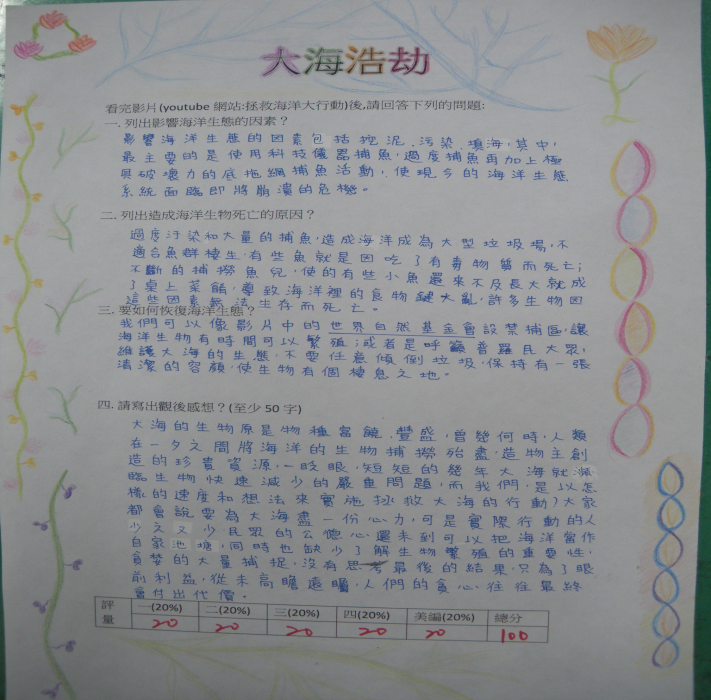 大海浩劫
看完影片(youtube 網站:拯救海洋大行動)後,請回答下列的問題:
一. 列出影響海洋生態的因素？
影響海洋生態的因素包括挖泥、污染、填海,其中,
最主要的是使用科技儀器捕魚,過度捕魚再加上極
具破壞力的底拖網捕魚活動,使現今的海洋生態
系統面臨即將崩潰的危機。
二. 列出造成海洋生物死亡的原因？
過度汙染和大量的捕魚,造成海洋成為大型垃圾場,不
適合魚群棲生,有些魚就是因吃了有毒物質而死亡;
不斷的捕撈魚兒,使的有些小魚還來不及長大就成
了桌上菜餚,導致海洋裡的食物鏈大亂,許多生物因
這些因素無法生存而死亡。
三. 要如何恢復海洋生態？
我們可以像影片中的世界自然基金會設禁捕區,讓
海洋生物有時間可以繁殖;或者是呼籲普羅民大眾,
維護大海的生態,不要任意傾倒垃圾,保持有一張
清潔的容顏,使生物有個棲息之地。
四. 請寫出觀後感想？(至少 50 字)
大海的生物原是物種富饒、豐盛,曾幾何時,人類
在一夕之間將海洋的生物捕撈殆盡,造物主創
造的珍貴資源,一眨眼,短短的幾年大海就瀕
臨生物快速減少的嚴重問題,而我們,是以怎
樣的速度和想法來實施拯救大海的行動?大家
都會說要為大海盡一份心力,可是實際行動的人
少之又少,民眾的公德心還未到可以把海洋當作
自家池塘,同時也缺少了解生物繁殖的重要性,
貪婪的大量捕捉,沒有思考最後的結果,只為了眼
前利益,從未高瞻遠矚,人們的貪心往往最終
會付出代價。
評量 一(20%) 二(20%) 三(20%) 四(20%) 美編(20%) 總分
20 20 20 20 20 100